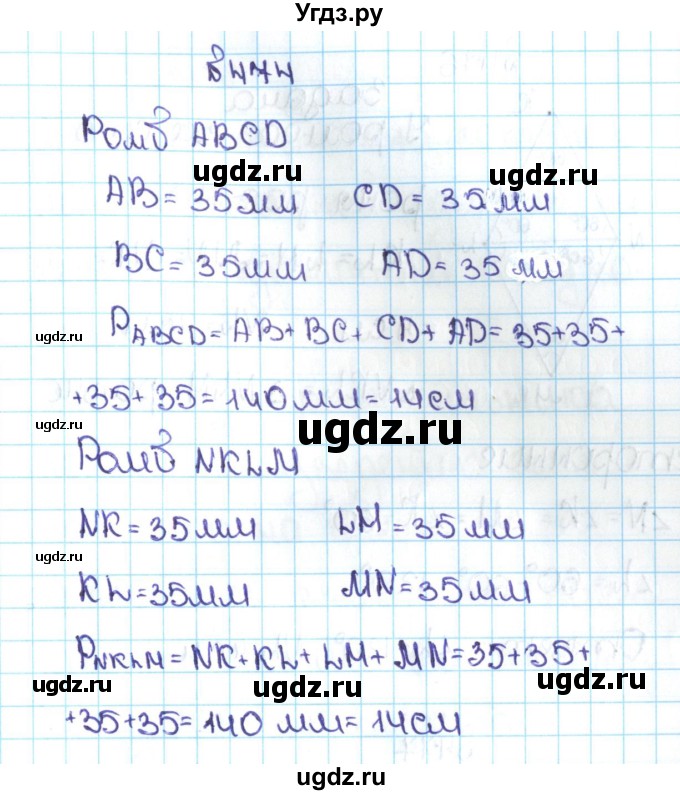 Угдз.ру
Ромб ABCD
ugdz.ru ugdz.ru
AB = 35 мм CD = 35 мм
BC = 35 мм AD = 35 мм
ugdz.ru
P ABCD = AB + BC + CD + AD = 35 + 35 +
ugdz.ru
+ 35 + 35 = 140 мм = 14 см
ugdz.ru
Ромб NKLM
NK = 35 мм LM = 35 мм
ugdz.ru
KL = 35 мм MN = 35 мм
P NKLM = NK + KL + LM + MN = 35 + 35 +
ugdz.ru ugdz.ru ugdz.ru
+ 35 + 35 = 140 мм = 14 см
ugdz.ru